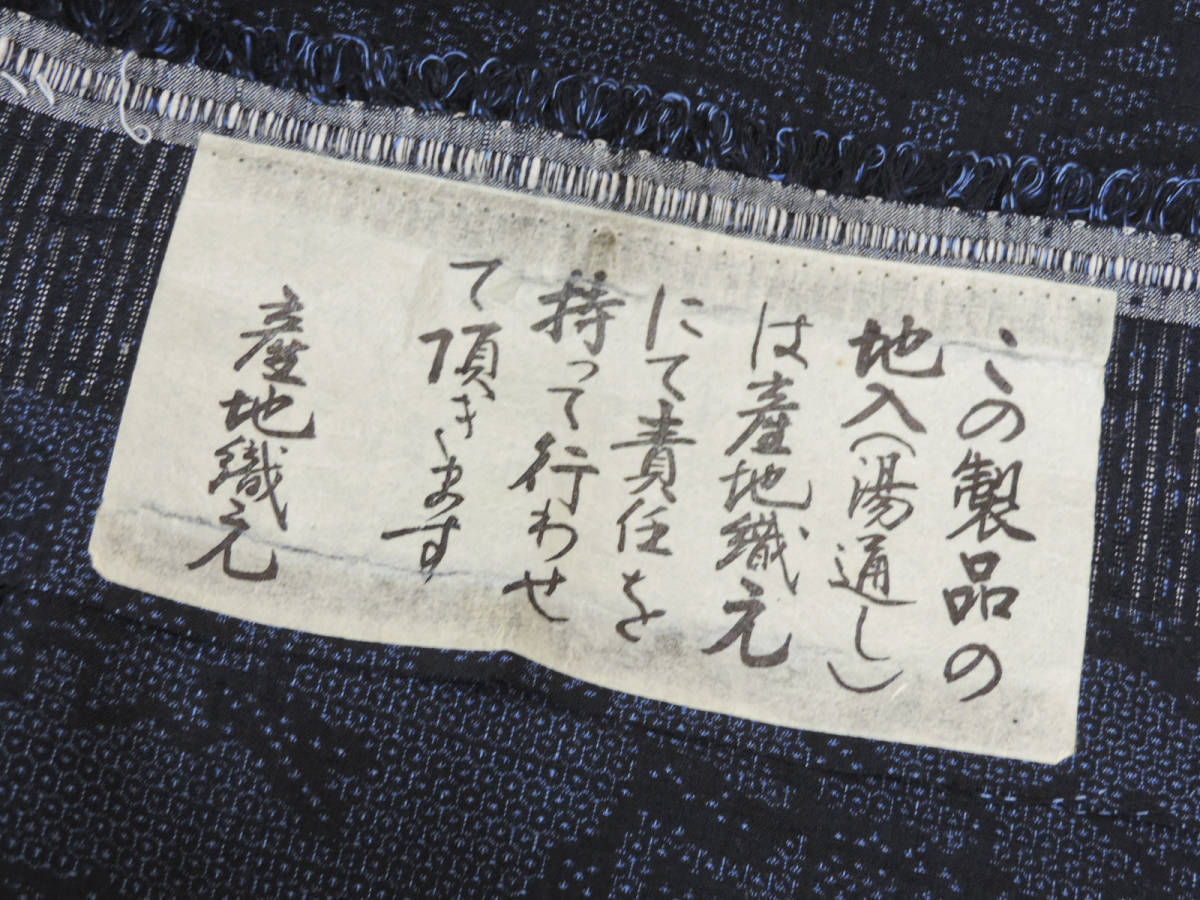 この製品の
地入(湯通し)
は産地織元
にて責任を
持って行わせ
て頂きます
産地織元